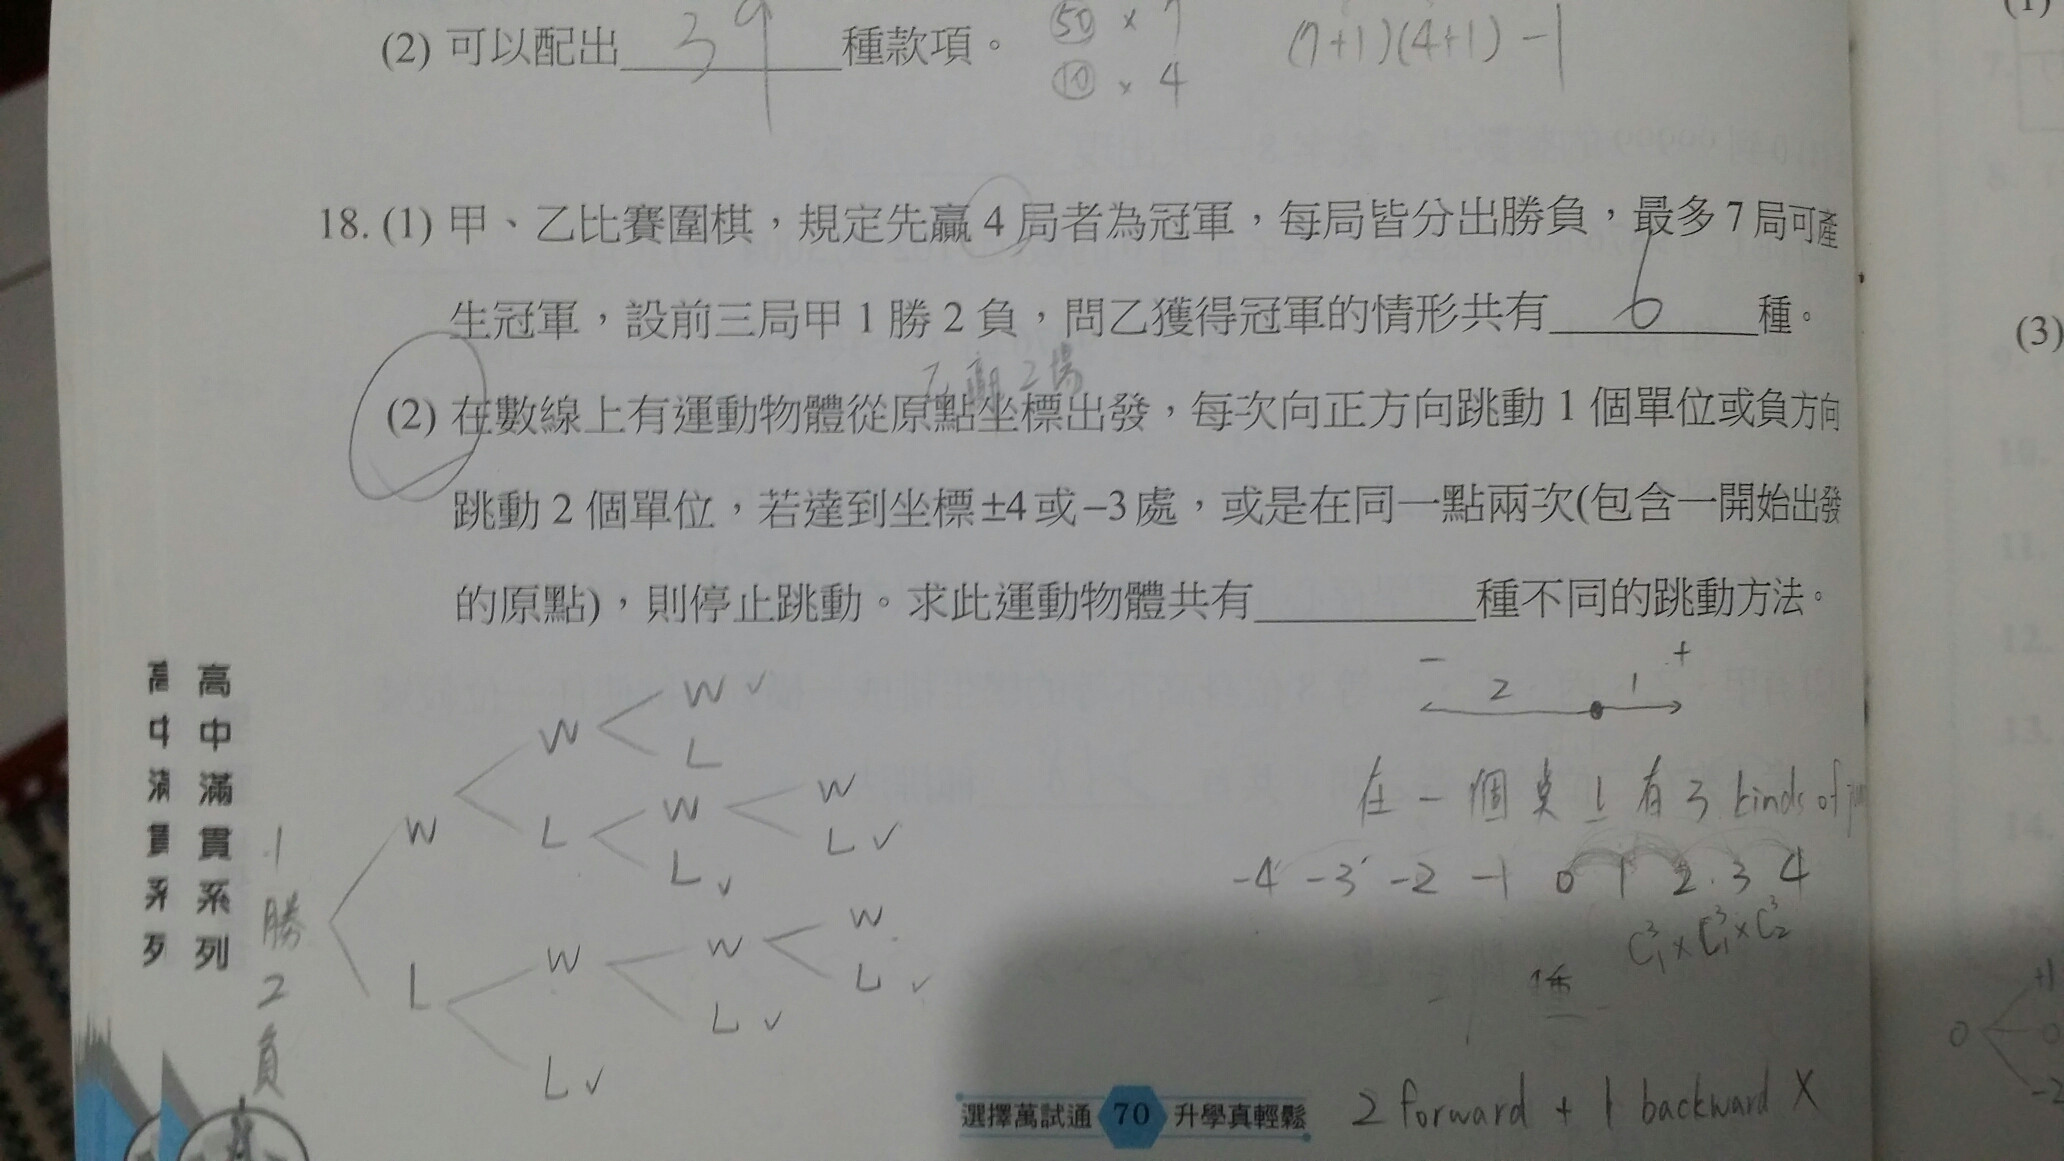 (2) 可以配出 39 種款項。
50 × 7
10 × 4
(7+1)(4+1) -1
18. (1) 甲、乙比賽圍棋，規定先贏 4 局者為冠軍，每局皆分出勝負，最多 7 局可產
生冠軍，設前三局甲 1 勝 2 負，問乙獲得冠軍的情形共有 6 種。
乙贏2場
(2) 在數線上有運動物體從原點坐標出發，每次向正方向跳動 1 個單位或負方向
跳動 2 個單位，若達到坐標±4或−3處，或是在同一點兩次(包含一開始出發
的原點)，則停止跳動。求此運動物體共有 種不同的跳動方法。
- 2 1 +
在一個桌上有3 kinds of
-4 -3 -2 -1 0 1 2 3 4
C³₁ × C³₁ × C³₂
種
2 forward + 1 backward X
1勝2負
W W W ✓
L
L W W
L ✓
L ✓
L W W W
L ✓
L ✓
L ✓
高中滿貫系列
高中滿貫系列
選擇萬試通 70 升學真輕鬆
(1)
7.
(3)
10.
11.
12.
13.
14.
0
+1
-2